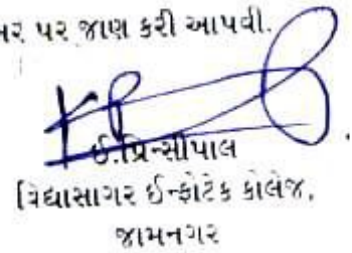 પર જાણ કરી આપવી.
ઈ.પ્રિન્સીપાલ
વિદ્યાસાગર ઈન્ફોટેક કોલેજ,
જામનગર